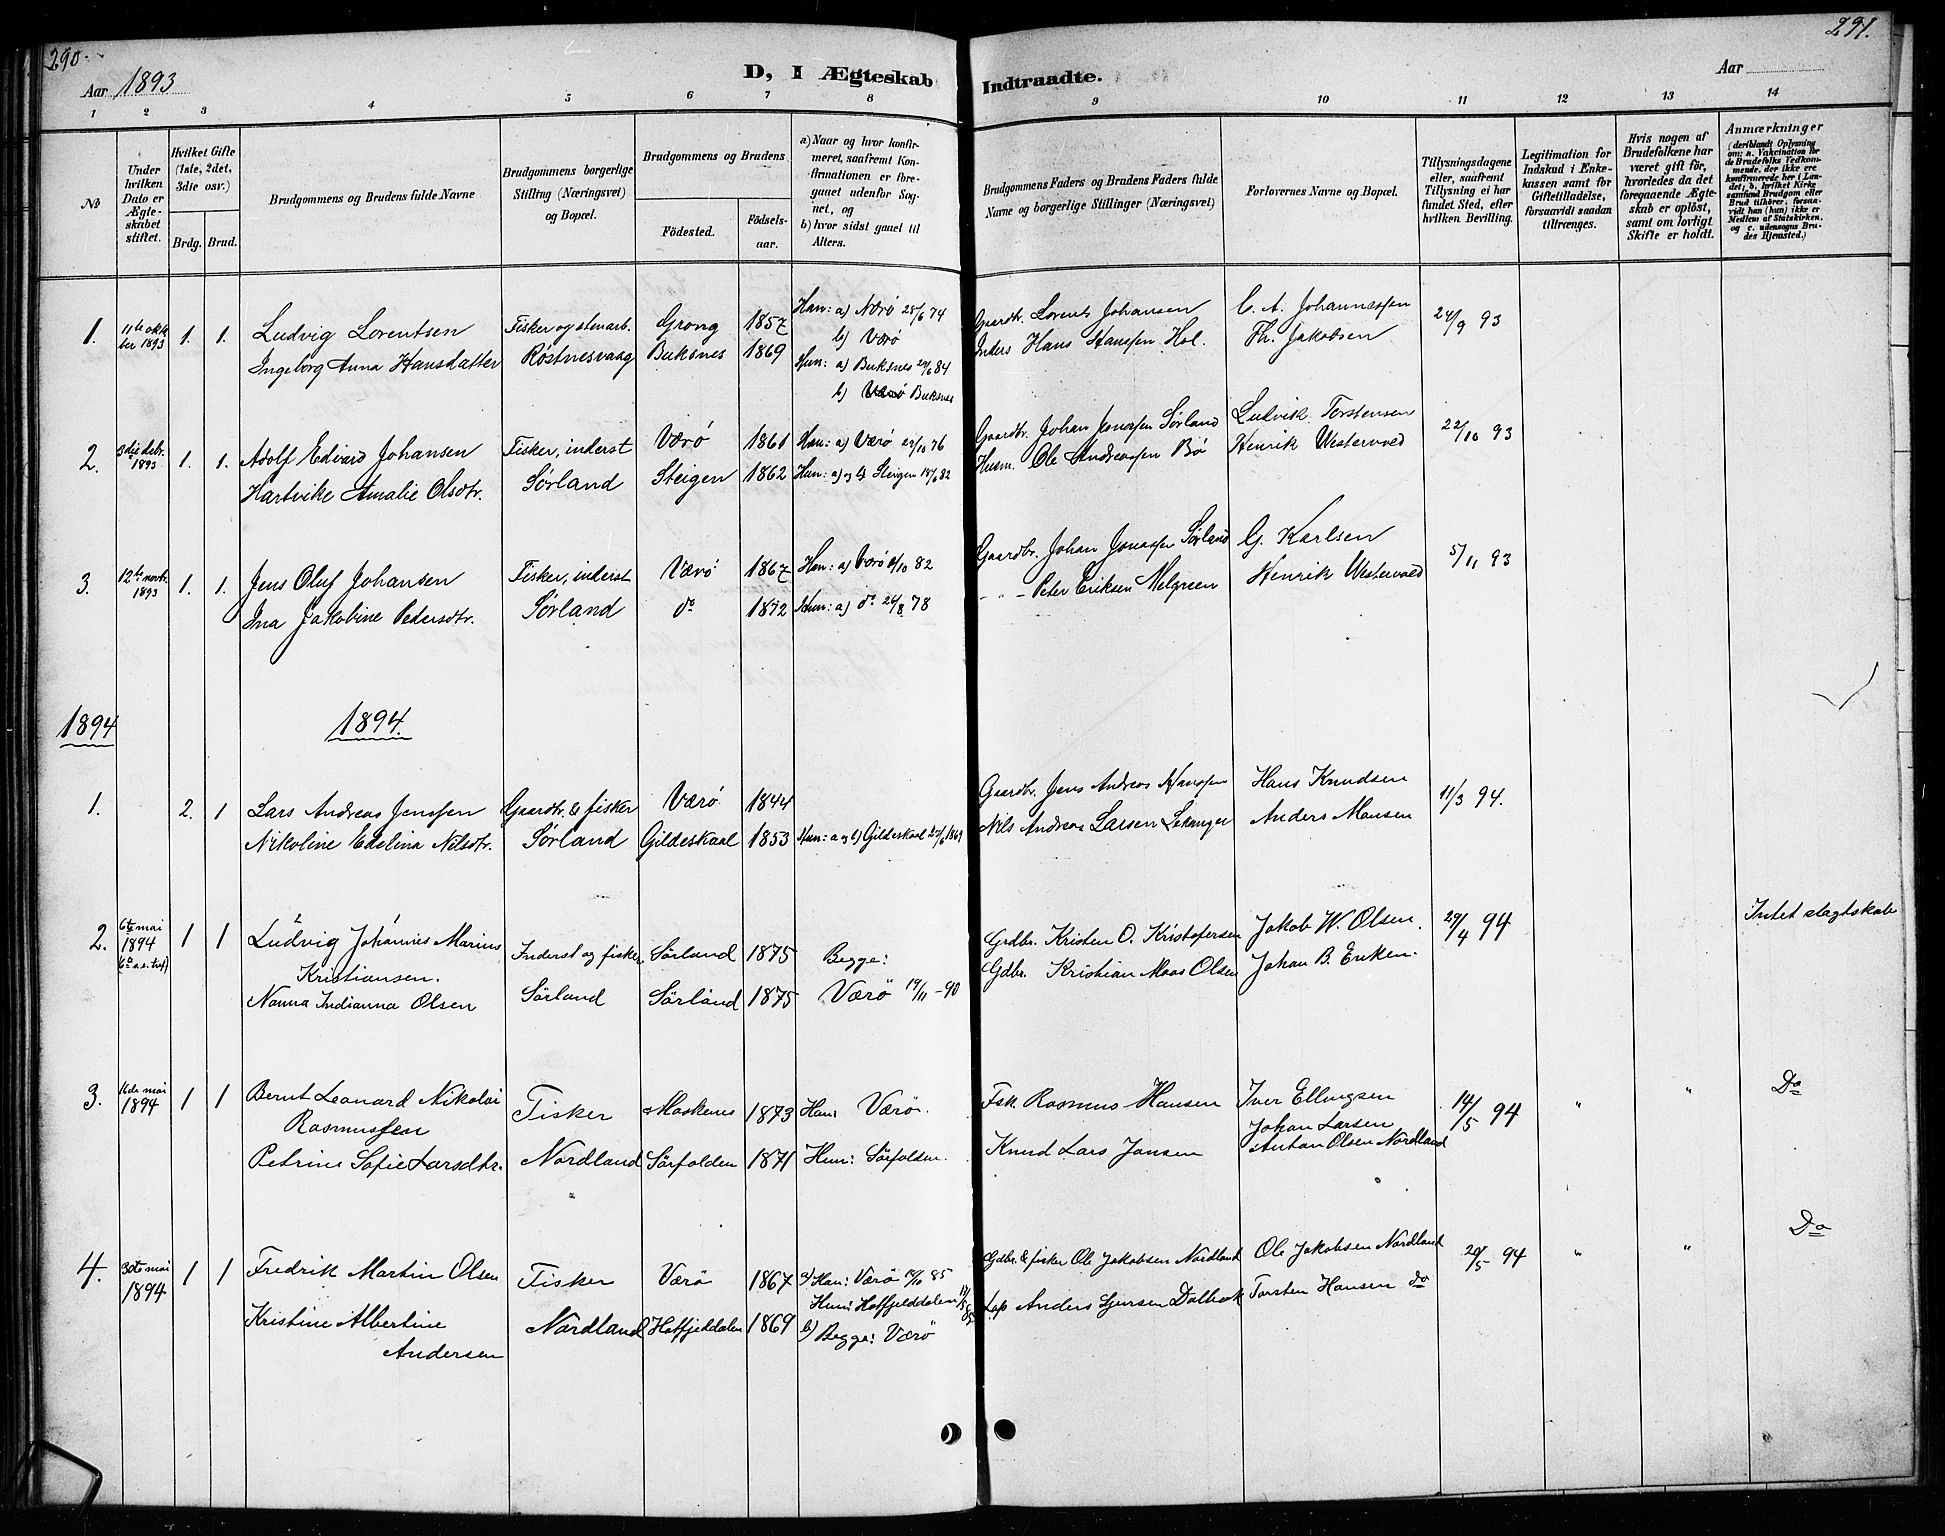 290.
291.
D, I Ægteskab Indtraadte.
Aar 1893
Aar
1 2 3 4 5 6 7 8 9 10 11 12 13 14
No
Under hvilken Dato er Ægteskabet stiftet.
Hvilket Gifte (1ste, 2det, 3die osv.)
Brdg. Brud.
Brudgommens og Brudens fulde Navne
Brudgommens borgerlige Stilling (Næringsvei) og Bopæl.
Brudgommens og Brudens
Födested.
Födselsaar.
a) Naar og hvor konfirmeret, saafremt Konfirmationen er foregaaet udenfor Sognet, og
b) hvor sidst gaaet til Alters.
Brudgommens Faders og Brudens Faders fulde Navne og borgerlige Stillinger (Næringsvei)
Forlovernes Navne og Bopæl.
Tillysningsdagene eller, saafremt Tillysning ei har fundet Sted, efter hvilken Bevilling.
Legitimation for Indskud i Enkekassen samt for Giftetilladelse, forsaavidt saadan tiltrænges.
Hvis nogen af Brudefolkene har været gift før, hvorledes da det foregaaende Ægteskab er oplöst, samt om lovligt Skifte er holdt.
Anmærkninger (deriblandt Oplysning om: a. Vakcination for de Brudefolks Vedkommende, der ikke ere konfirmerede her i Landet; b. hvilket Kirkesamfund Brudgom eller Brud tilhörer, forsaavidt han (hun) ikke er Medlem af Statskirken, og c. udensogns Brudes Hjemsted.)
1. 11te oktober 1893 1. 1. Ludvig Lorentsen Fisker og stenarb. Grong 1857 Han: a) Værø 28/6 74 Gaardbr. Lorents Johansen C. A. Johannessen 24/9 93
b) Værø
Ingeborg Anna Hansdatter Røstnesvaag Buksnes 1869 Hun: a) Buksnes 29/6 84 Inders Hans Hanssen Hol. Th. Jakobsen
b) Værø Buksnes
2. 3die debr. 1893 1. 1. Adolf Edvard Johansen Fisker, inderst Værø 1861 Han: a) Værø 29/10 76 Gaardbr. Johan Jonassen Sørland Ludvik Torstensen 22/10 93
Hartvike Amalie Olsdtr. Sørland Steigen 1862 Hun: a) og b) Steigen 18/6 82 Husm. Ole Andreassen Bø Henrik Westervold
3. 12te novbr. 1893 1. 1. Jens Oluf Johansen Fisker, inderst Værø 1867 Han: a) Værø 8/10 82 Gaardbr. Johan Jonassen Sørland G. Karlsen 5/11 93
Ina Jakobine Pedersdtr. Sørland do 1872 Hun: a) do 24/8 78 - " - Peter Eriksen Melgreen Henrik Westervold
1894 1894.
1. 2. 1 Lars Andreas Jenssen Gaardbr. & fisker Værø 1844 Gaardbr. Jens Andreas Hanssen Hans Knudsen 11/3 94.
Nikoline Edelina Nilsdtr. Sørland Gildeskaal 1853 Hun: a og b) Gildeskaal 27/6 1869 Nils Andreas Larsen Lekanger Anders Monsen
2. 6te mai 1894 (6te s.e. tref) 1 1 Ludvig Johannes Marius Kristiansen. Inderst og fisker Sørland 1875 Begge: Grdbr. Kristen O. Kristofersen Jakob W. Olsen. 29/4 94 Intet slægtskab
Nanna Indianna Olsen Sörland Sörland 1875 Værö 19/11-90 Gdbr. Kristian Moas Olsen Johan B. Eriksen.
3. 16de mai 1894 1 1 Bernt Leonard Nikolai Rasmussen Fisker Moskenes 1873 Han: Værö. Fsk. Rasmus Hansen Iver Ellingsen 14/5 94 " " Do
Johan Larsen
Petrine Sofie Larsdtr. Nordland Sörfolden 1871 Hun: Sörfolden. Knud Lars Jansen Anton Olsen Nordland
4. 30te mai 1894 1 1 Fredrik Martin Olsen Fisker Værö 1867 a) Han: Værö 18/10 85 Gdbr. & fisker Ole Jakobsen Nordland Ole Jakobsen Nordland 20/5-94 " " Do
Hun: Hatfjelddalen
Kristine Albertine Andersen Nordland Hatfjeddalen 1869 b) Begge: Værö Lap Anders Sjursen Dalbak Torsten Hansen do